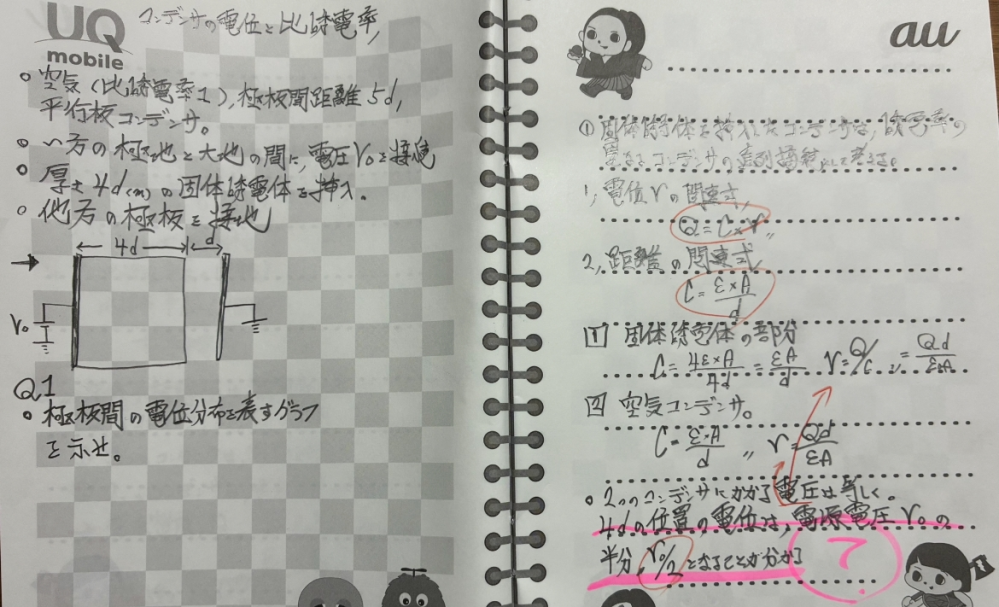 UQ
mobile
コンデンサの電位と比誘電率,
○空気(比誘電率1),極板間距離5d,
平行板コンデンサ。
○一方の極地と大地の間に,電圧V₀を接続
○厚さ4d(m)の固体誘電体を挿入.
○他方の極板を接地
4d d
V₀
Q1
○極板間の電位分布を表すグラフ
を示せ。
au
① 固体誘電体を挿入したコンデンサは,誘電率の
コンデンサの直列接続として考える。
1,電位Vの関連式,
Q=C×V,,
2,距離の関連式,
C=ε×A/d
固体誘電体の部分
C=4ε×A/4d=εA/d V=Q/C,,=Qd/εA
空気コンデンサ。
C=ε・A/d ,, V=Qd/εA
○2つのコンデンサにかかる電圧は等しく。
4dの位置の電位は,電源電圧V₀の
半分,V₀/2となることが分かる
?